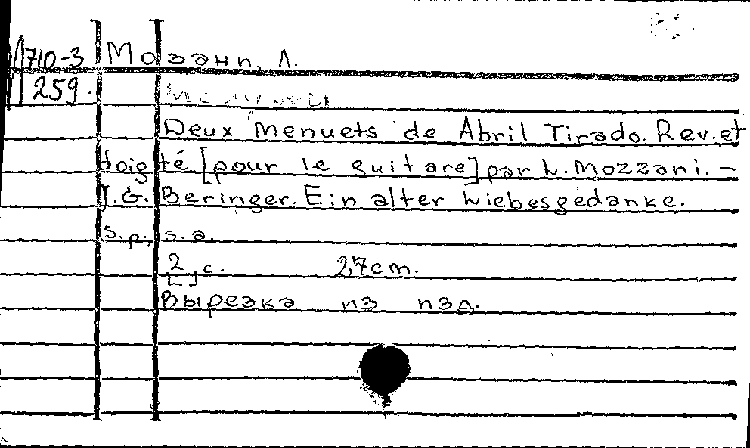 710-3 Моззани, Л.
259.
Deux Menuets de Abril Tirado. Rev. et
doigté [pour le guitare] par L. Mozzani. –
J.G. Beringer. Ein alter Liebesgedanke.
s.p., s.a.
[2] с. 27cm.
Вырезка из изд.